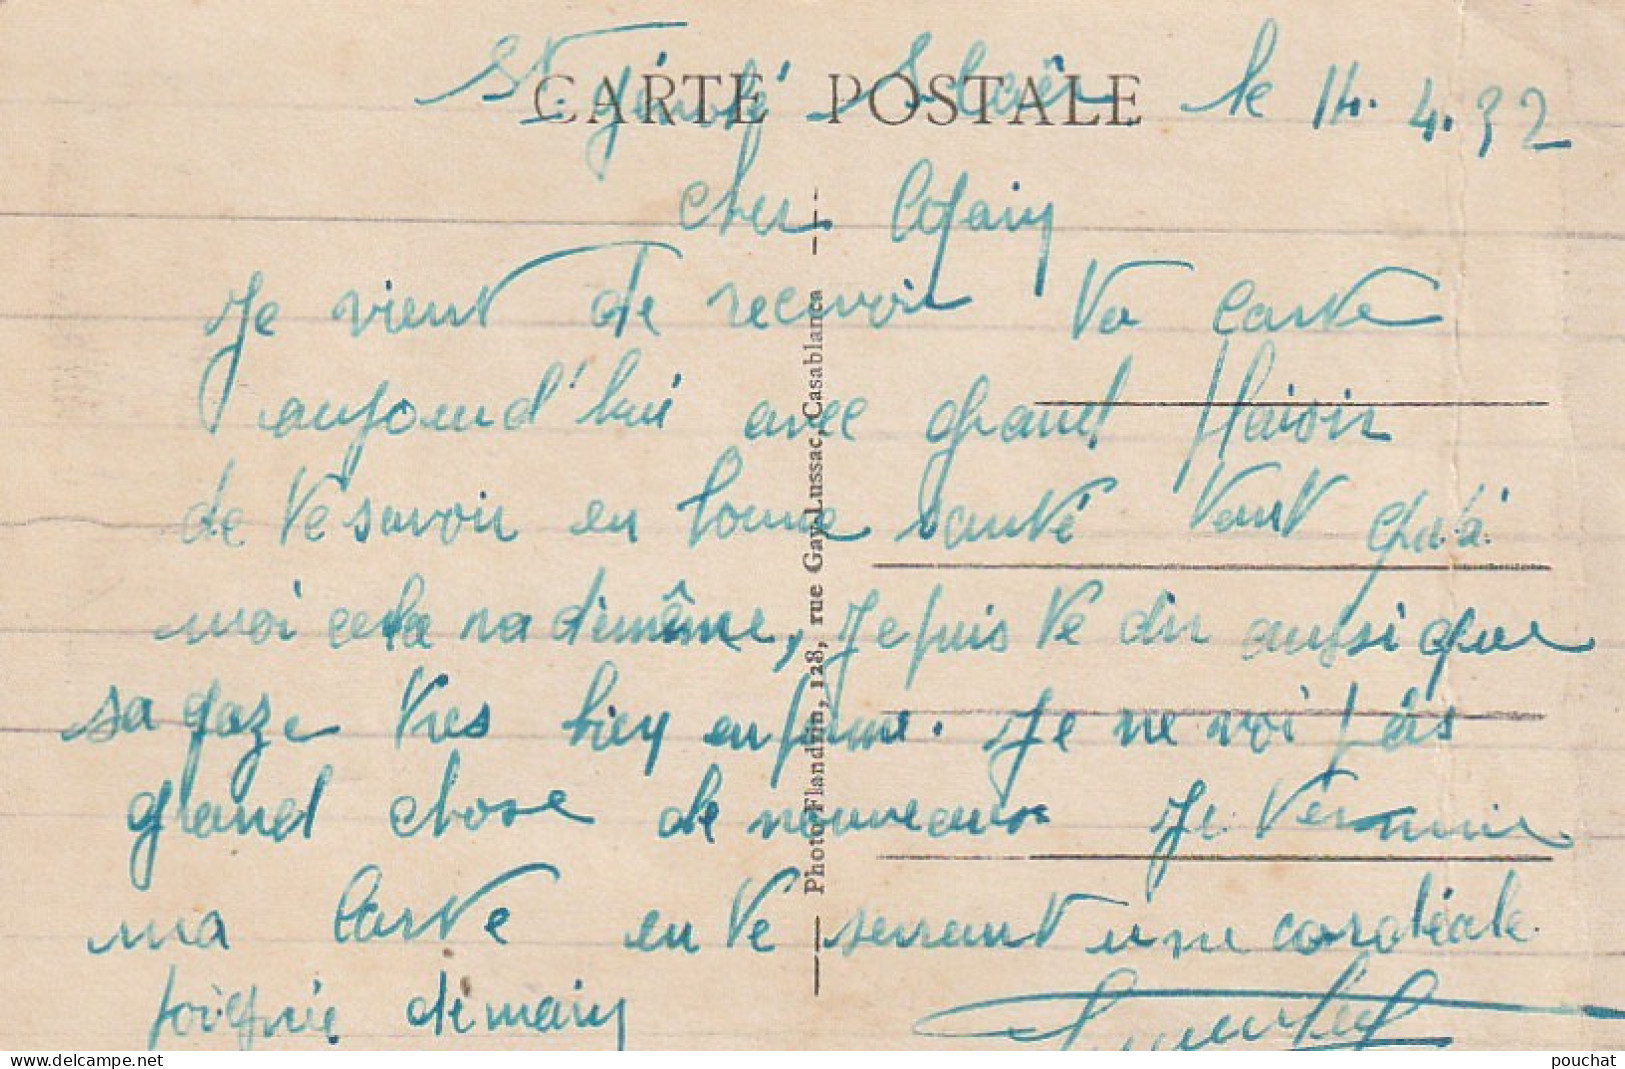 CARTE POSTALE
le 14.4.32
cher Copain
Je vient de recevoir ta carte
aujourd'hui avec grand plaisir
de te savoir en bonne santé tant qu'à
moi cela va dimême, Je puis te dir aussi que
sa gaze tres bien en forme. Je ne voi pas
grand chose de nouveaux Je termine
ma carte en te serrant une cordiale
poignie demain
Photo Flandrin, 128, rue Gay-Lussac, Casablanca
delcampe.net
pouchat